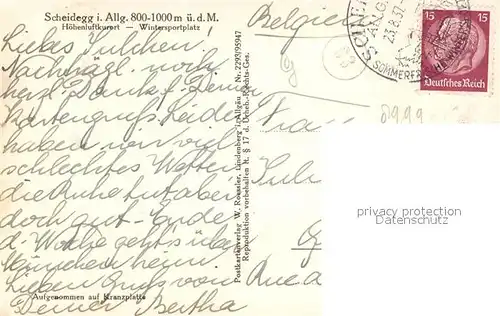 Scheidegg i. Allg. 800-1000 m ü. d. M.
Höhenluftkurort — Wintersportplatz
Belgien
Liebes Julchen!
Nachträgl. noch
herzl. Dank f. Deinen
Kartengruß. Leider
haben wir viel
schlechtes Wetter
die Ruhe tut aber
doch gut. Ende
d. Woche geht's über
München heim
Lieben Gruß von
Deiner Bertha
Aufgenommen auf Kranzplatte
Postkartenverlag W. Roessler, Lindenberg i. Allgäu Nr. 2293/95947
Reproduktion vorbehalten R. § 17 d. Urheb.-Rechts-Ges.
Frau
Jul
Rue d
23.8.37
SOMMERFR
15 15
Deutsches Reich
8999
privacy protection
Datenschutz